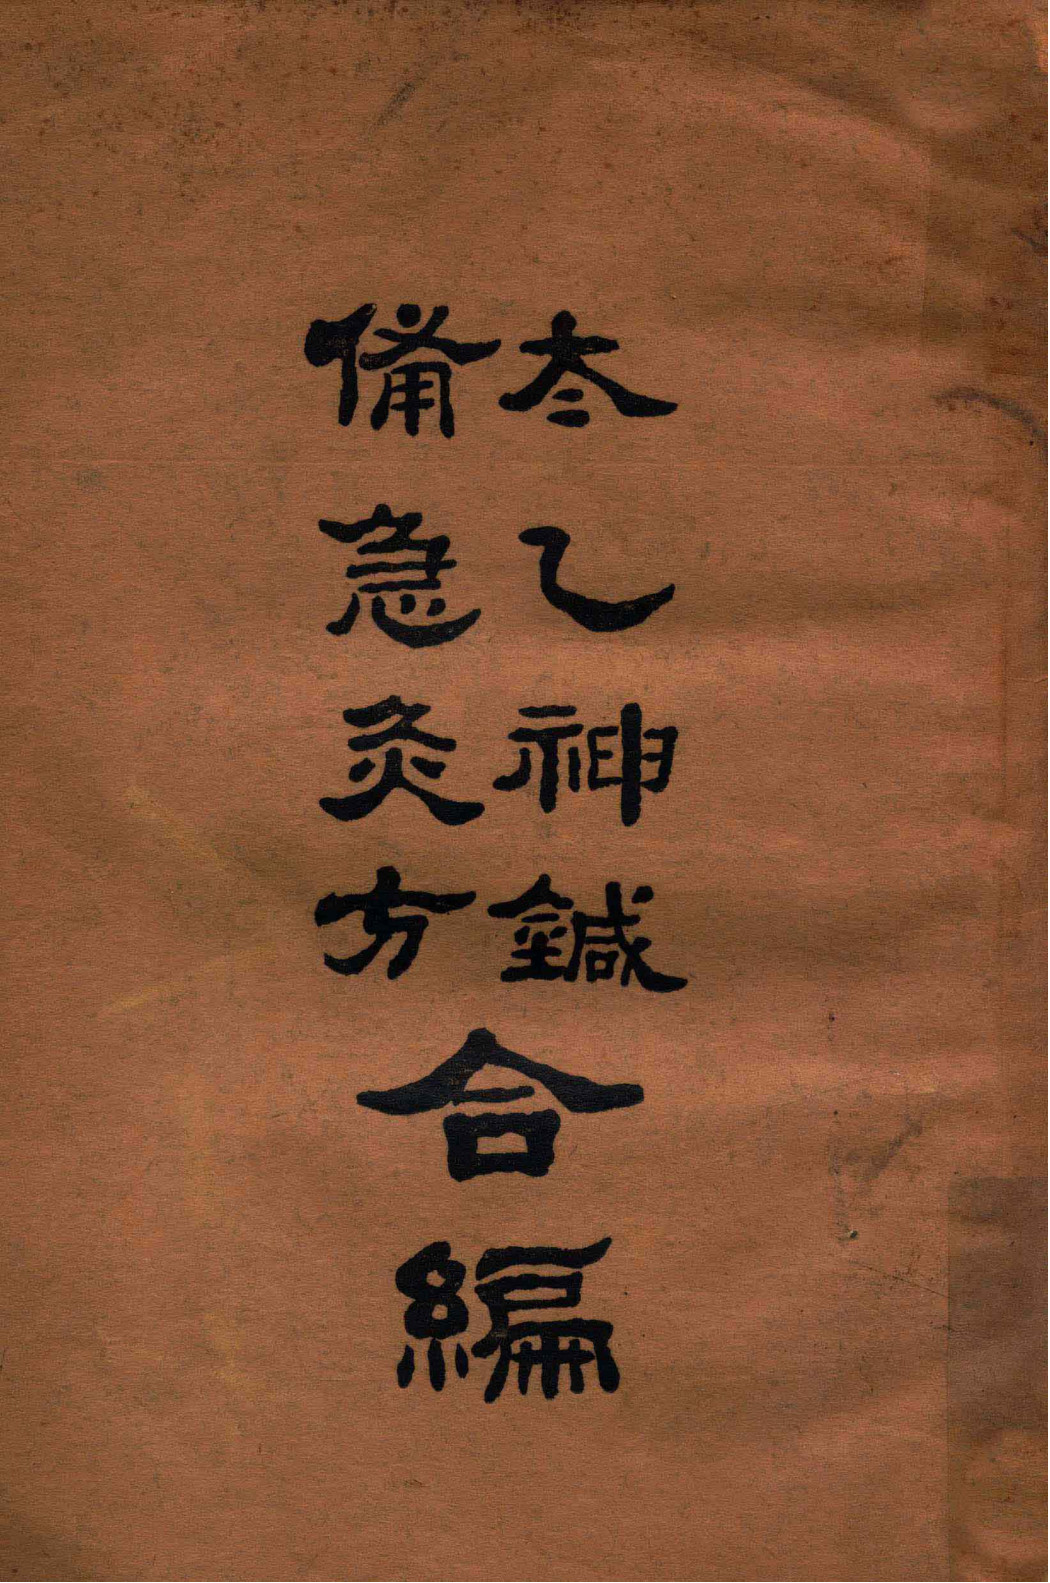 太乙神鍼
備急灸方
合編